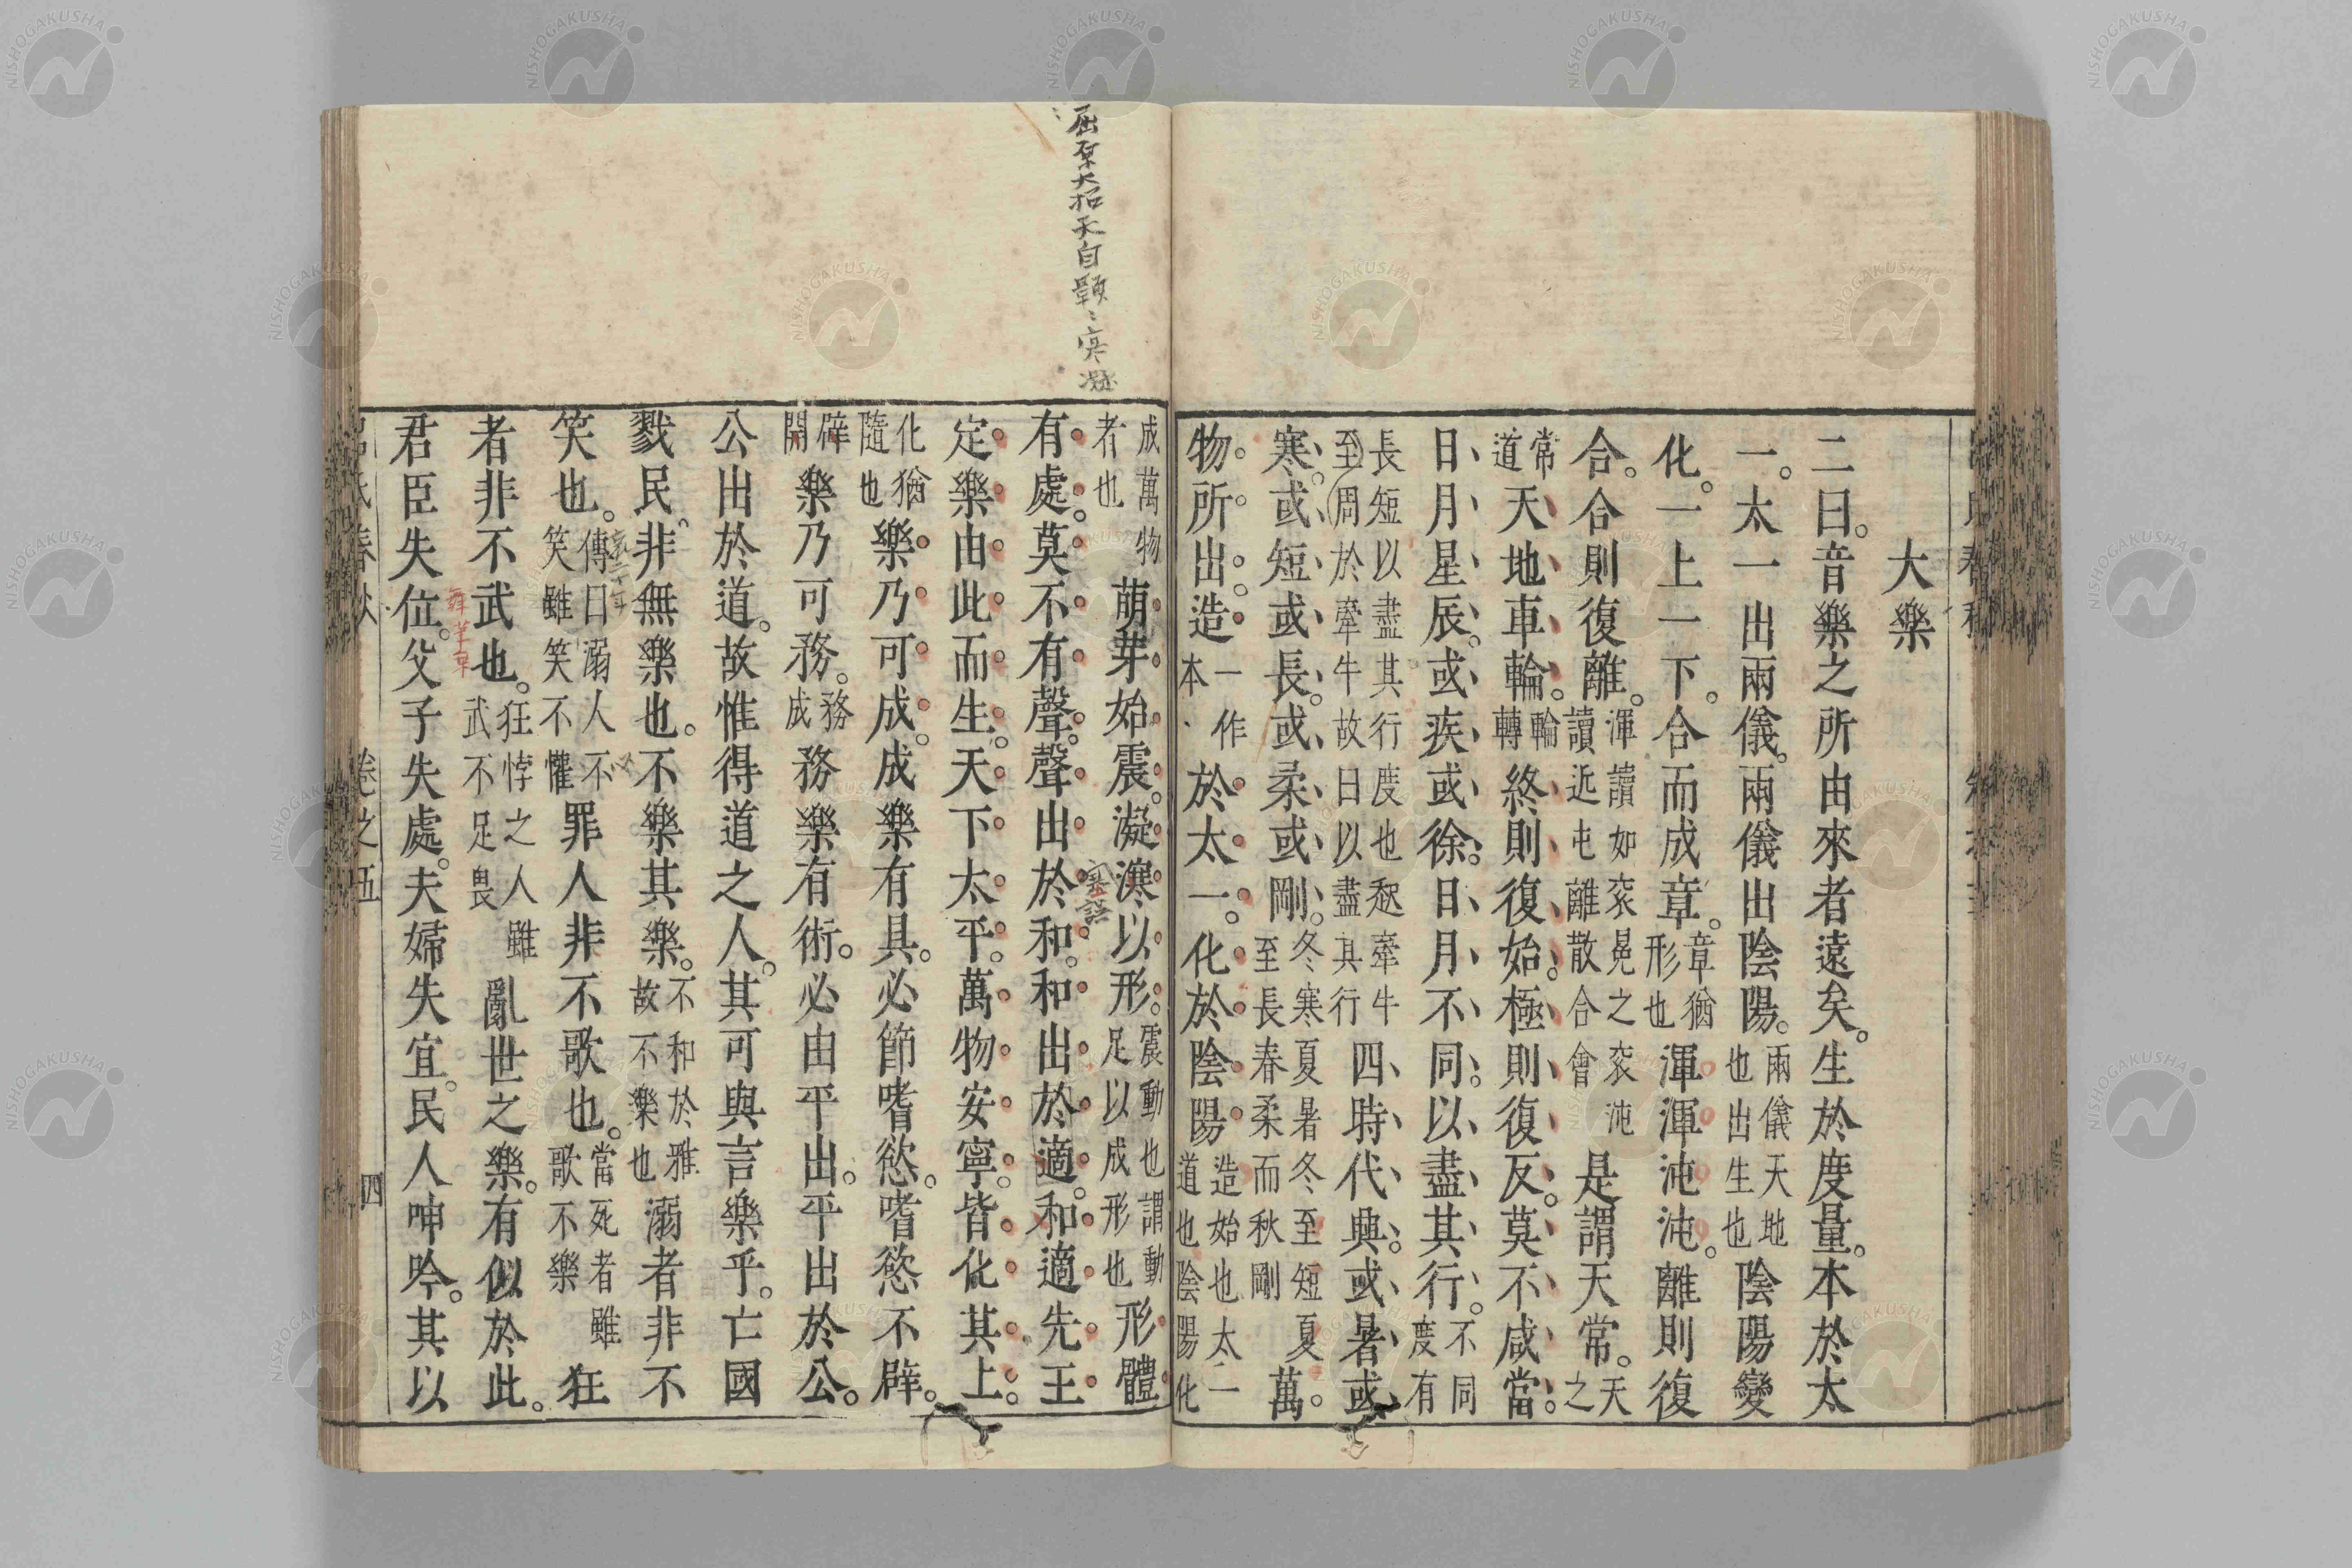 大樂
二曰。音樂之所由來者遠矣。生於度量。本於太
一。太一出兩儀。兩儀出陰陽。兩儀天地也出生也陰陽變
化。一上一下。合而成章。章猶形也渾渾沌沌。離則復
合。合則復離。渾讀如衮冕之衮沌讀近屯離散合會是謂天常。天之
常道天地車輪。輪轉終則復始。極則復反。莫不咸當。
日月星辰。或疾或徐。日月不同。以盡其行。不同度有
長短以盡其行度也愆牽牛至周於牽牛故曰以盡其行四時代興。或暑或
寒。或短或長。或柔或剛。冬寒夏暑冬至短夏至長春柔而秋剛萬
物所出。造一作本於太一。化於陰陽。造始也太一道也陰陽化
屈原大招天白顥〻寒凝
成萬物者也萌芽始震。凝㴋以形。震動也謂動足以成形也形體
有處。莫不有聲。聲出於和。和出於適。和適先王
定樂由此而生。天下太平。萬物安寧。皆化其上。
化猶隨也樂乃可成。成樂有具。必節嗜慾。嗜慾不辟。
辟開樂乃可務。務成務樂有術。必由平出。平出於公。
公出於道。故惟得道之人。其可與言樂乎。亡國
戮民。非無樂也。不樂其樂。不和於雅故不樂也溺者非不
笑也。傳曰溺人不笑雖笑不懽罪人非不歌也。當死者雖歌不樂狂
者非不武也。狂悖之人雖武不足畏亂世之樂。有似於此。
君臣失位。父子失處。夫婦失宜。民人呻吟。其以
呂氏春秋 卷之五 四
NISHOGAKUSHA